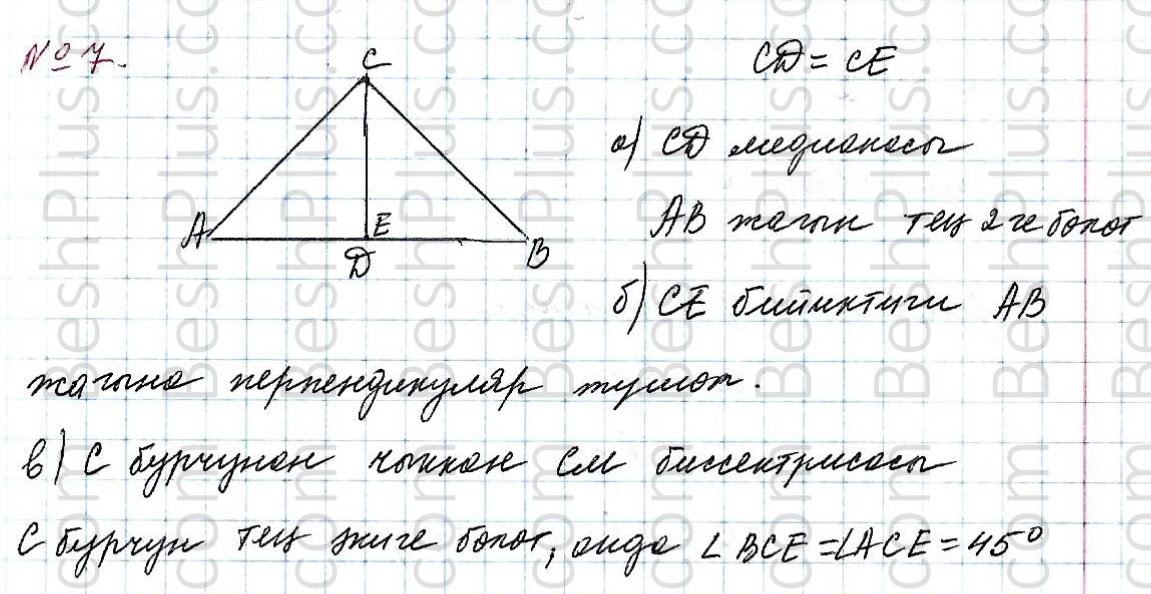 № 7.
C
CD = CE
а) CD медианасы
A E
D B
AB жагын тең 2 ге бөлөт
б) CE бийиктиги AB
жагына перпендикуляр түшөт.
в) C бурчунан чыккан CM биссектрисасы
C бурчун тең экиге бөлөт, анда ∠BCE = ∠ACE = 45°
BeshPlus.com